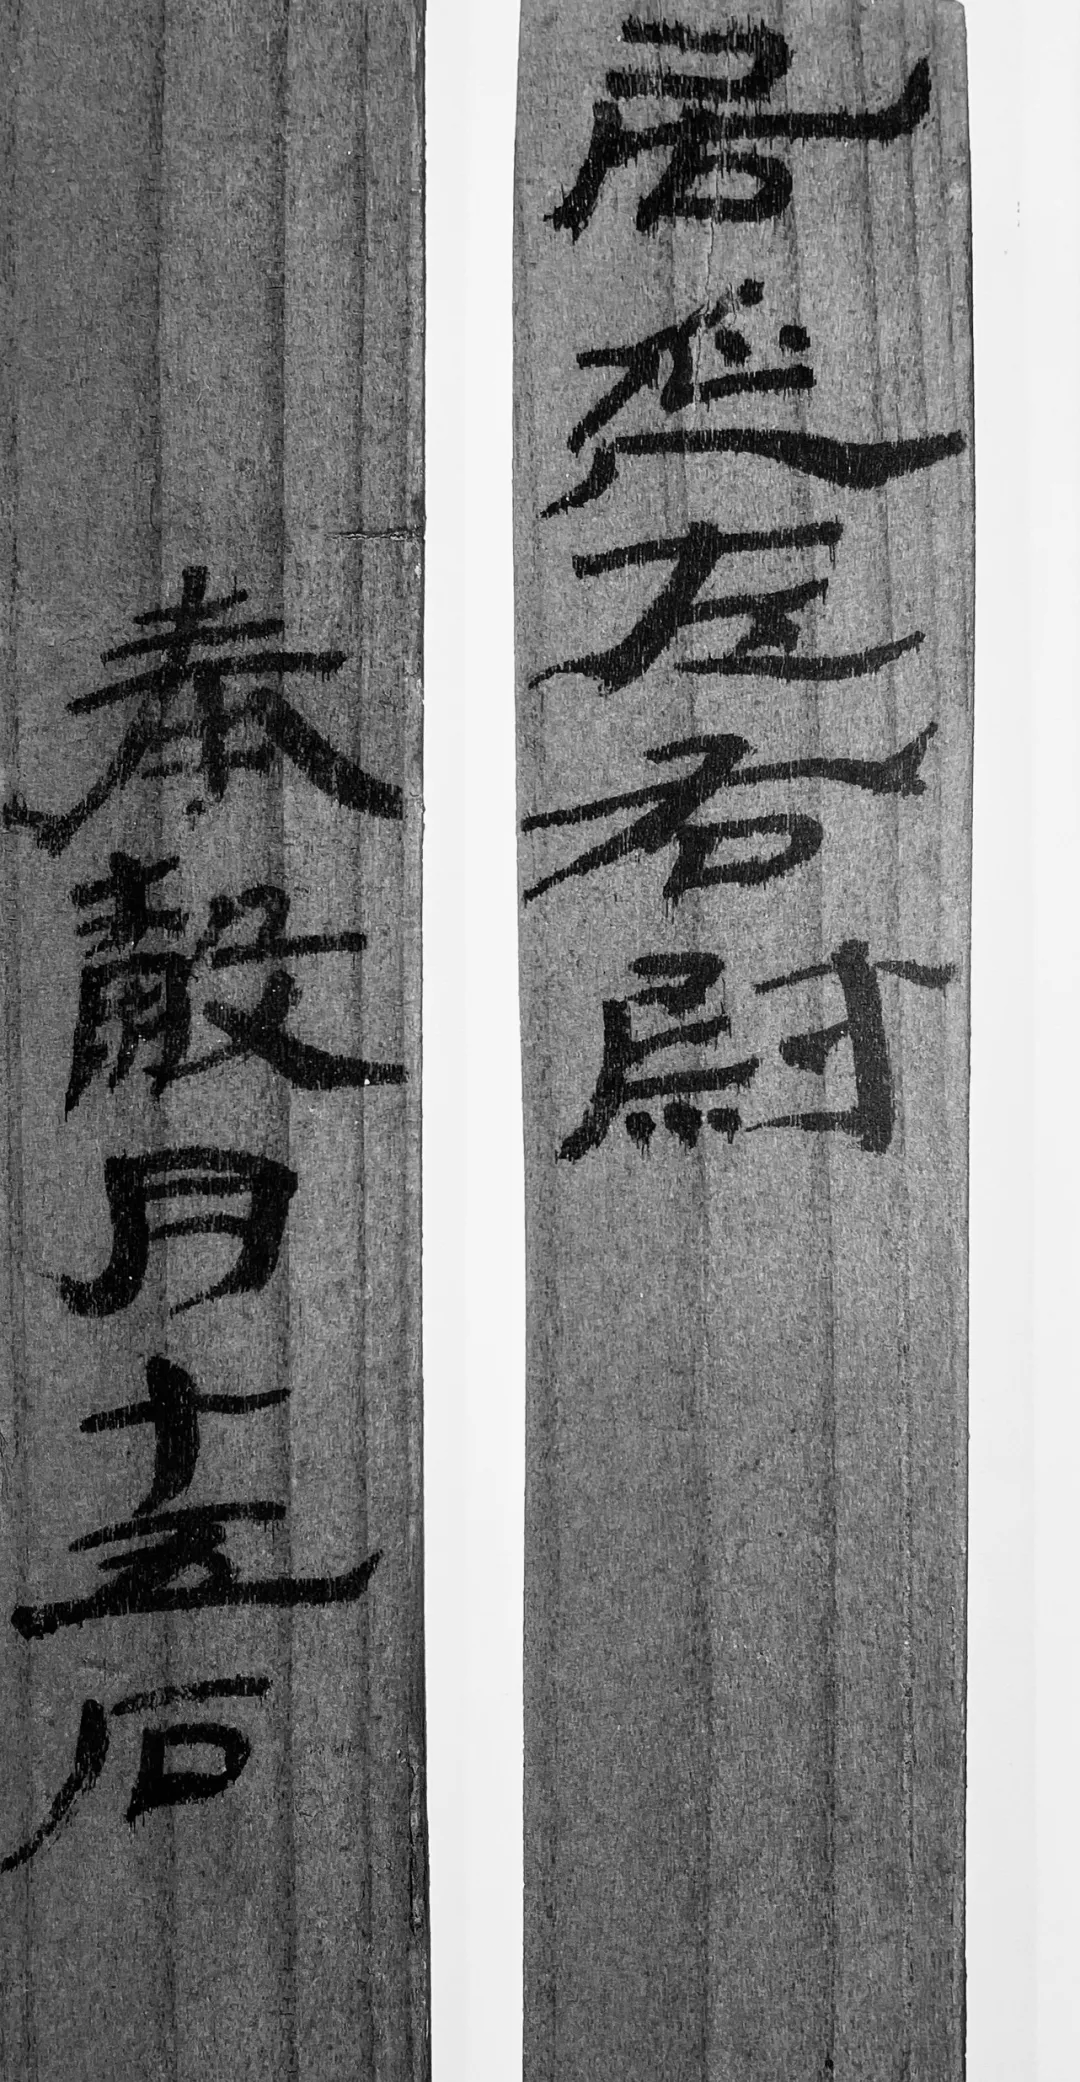 居延左右尉
奉穀月十五石